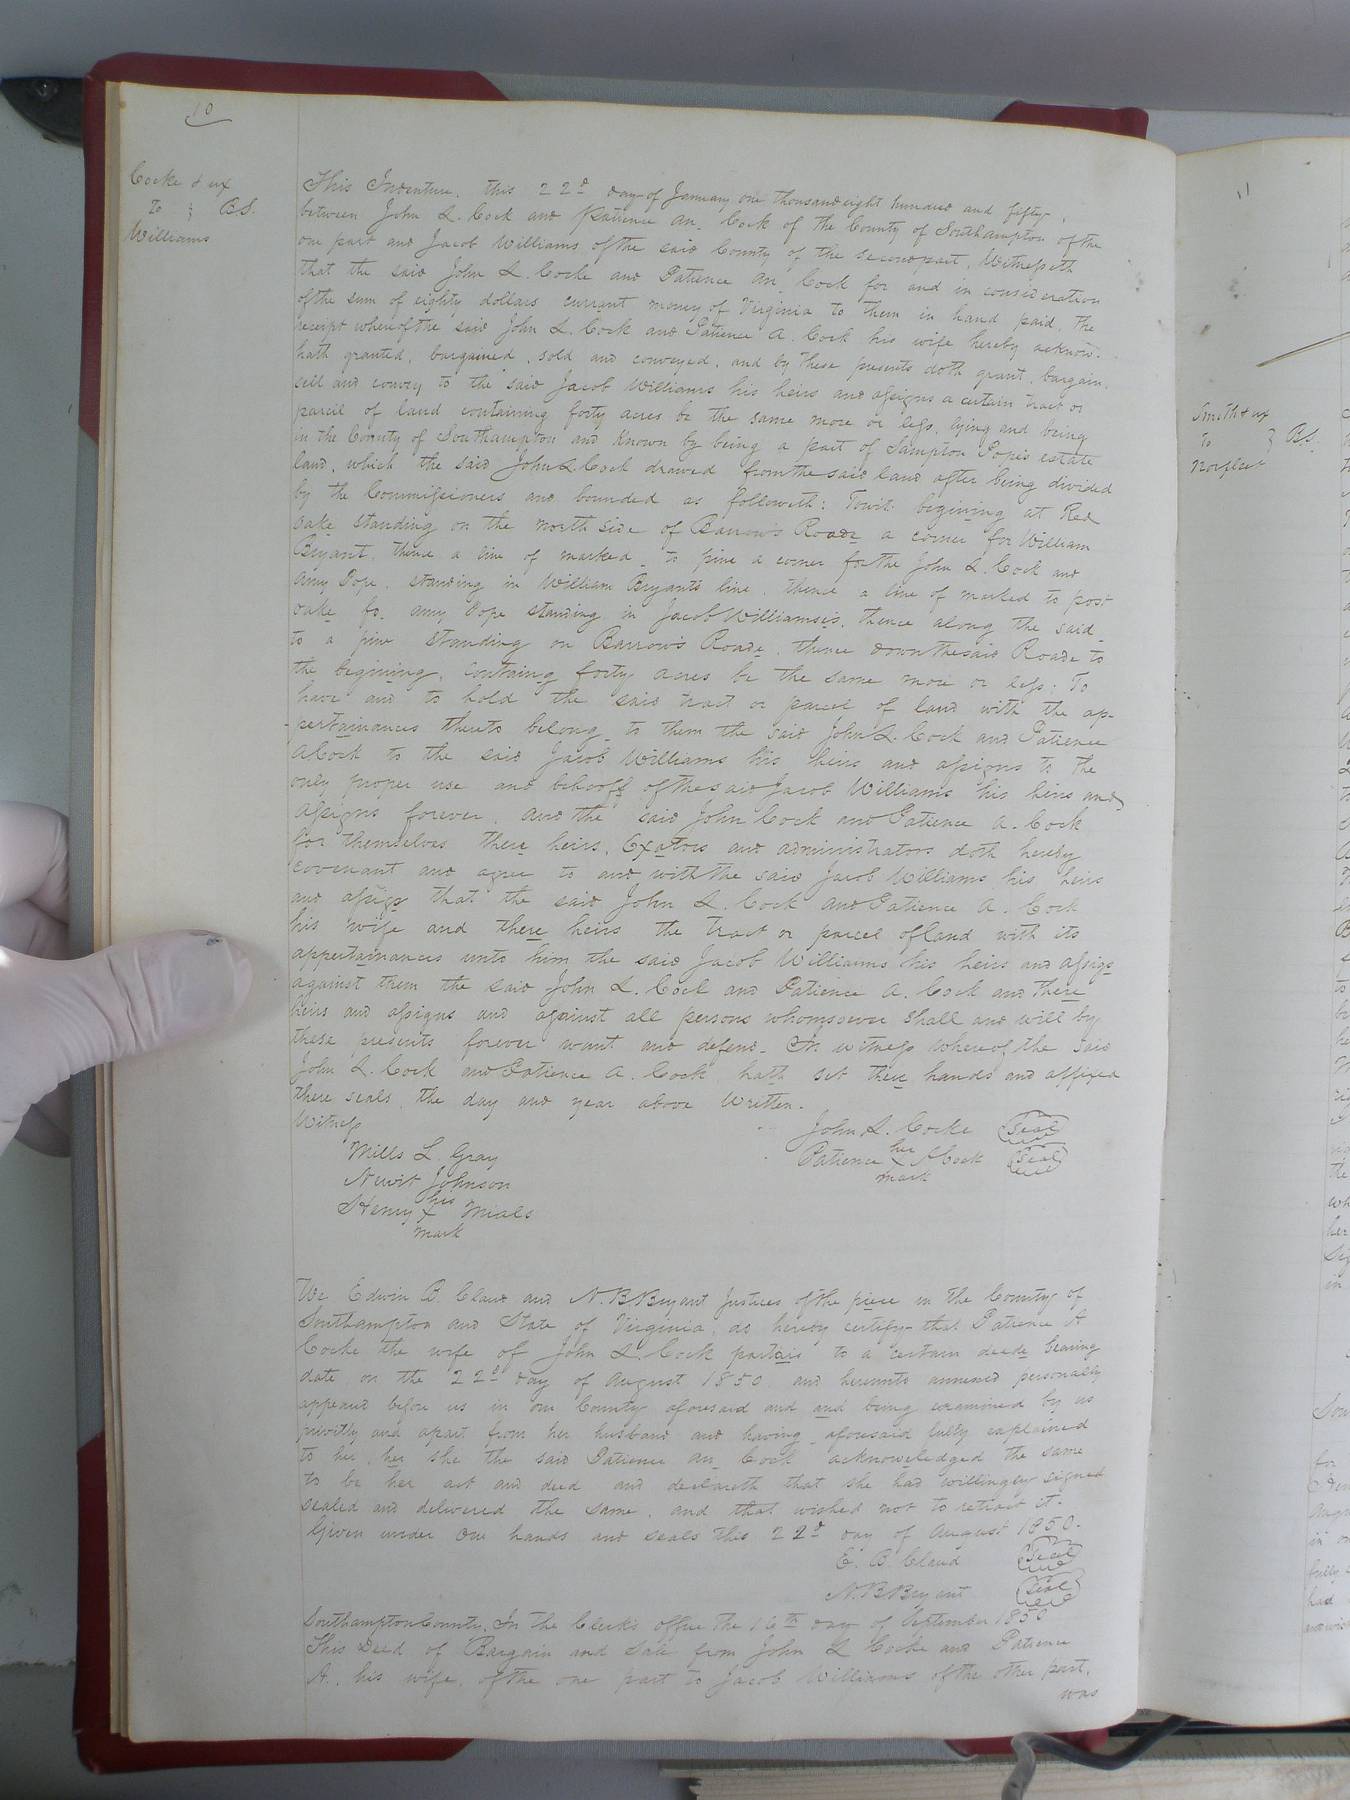 10
Cocke & ux
to } B.S.
Williams
This Indenture, this 22d day of January one thousand eight hundred and fifty,
between John L. Cock and Patience An. Cock of the County of Southampton of the
one part and Jacob Williams of the said County of the second part, Witnesseth
that the said John L. Cocke and Patience An. Cock for and in consideration
of the sum of eighty dollars currant money of Virginia to them in hand paid, the
receipt whereof the said John L. Cock and Patience A. Cock his wife hereby acknow.
hath granted, bargained, sold and conveyed, and by these presents doth grant, bargain,
sell and convey to the said Jacob Williams his heirs and assigns a certain tract or
parcil of land containing forty acres be the same more or less, lying and being
in the County of Southampton and Known by being a part of Sampton Popes estate
land, which the said John L Cock drawed from the said land after being divided
by the Commissioners and bounded as followeth: Towit begining at Red
oake standing on the north side of Barrow's Roade a corner for William
Bryant, thence a line of marked to pine a corner for the John L. Cock and
Amy Pope, standing in William Bryant's line, thence a line of marked to post
oake fo. amy Pope standing in Jacob Williamses, thence along the said
to a pine standing on Barrow's Roade, thence down the said Roade to
the begining, containg forty acres be the same more or less; To
have and to hold the said tract or parcel of land with the ap-
pertainances thereto belong to them the said John L. Cock and Patience
A Cock to the said Jacob Williams his heirs and assigns to the
only proper use and behooff of the said Jacob Williams his heirs and
assigns forever, and the said John Cock and Patience A. Cock
for themselves there heirs, Exators and administrators doth hereby
covenant and agree to and with the said Jacob Williams his heirs
and assigs that the said John L. Cock and Patience A. Cock
his wife and there heirs the tract or parcel of land with its
appertainances unto him the said Jacob Williams his heirs and assigs
against them the said John L. Cock and Patience A. Cock and there
heirs and assigns and against all persons whomsoever shall and will by
these presents forever want and defend. In witness whereof the said
John L. Cock and Patience A. Cock hath set there hands and affixed
there seals, the day and year above Written.
Witness
John L. Cocke Seal
Patience her x A Cock Seal
mark
Mills L. Gray
Newit Johnson
Henry his x Mials
mark
We Edwin B. Claud and N. B Bryant Justices of the piece in the County of
Southampton and State of Virginia, as hereby certify that Patience A
Cocke the wife of John L. Cock parteis to a certain deede bearing
date on the 22d day of August 1850 and hereunto annexed personally
appeard before us in our County aforesaid and and being examined by us
privitly and apart from her husband and having aforesaid fully explained
to her, her she the said Patience An Cock acknowledged the same
to be her act and deed and declareth that she had willingly signed
sealed and delivered the same, and that wished not to retract it.
Given under our hands and seals this 22d day of August 1850.
E. B. Claud Seal
N. B Bryant Seal
Southampton County, In the Clerk's office the 16th day of September 1850
This Deed of Bargain and Sale from John L Cocke and Patience
A. his wife, of the one part to Jacob Williams of the other part,
was
11
Smith & ux
to } B.S.
Norfleet